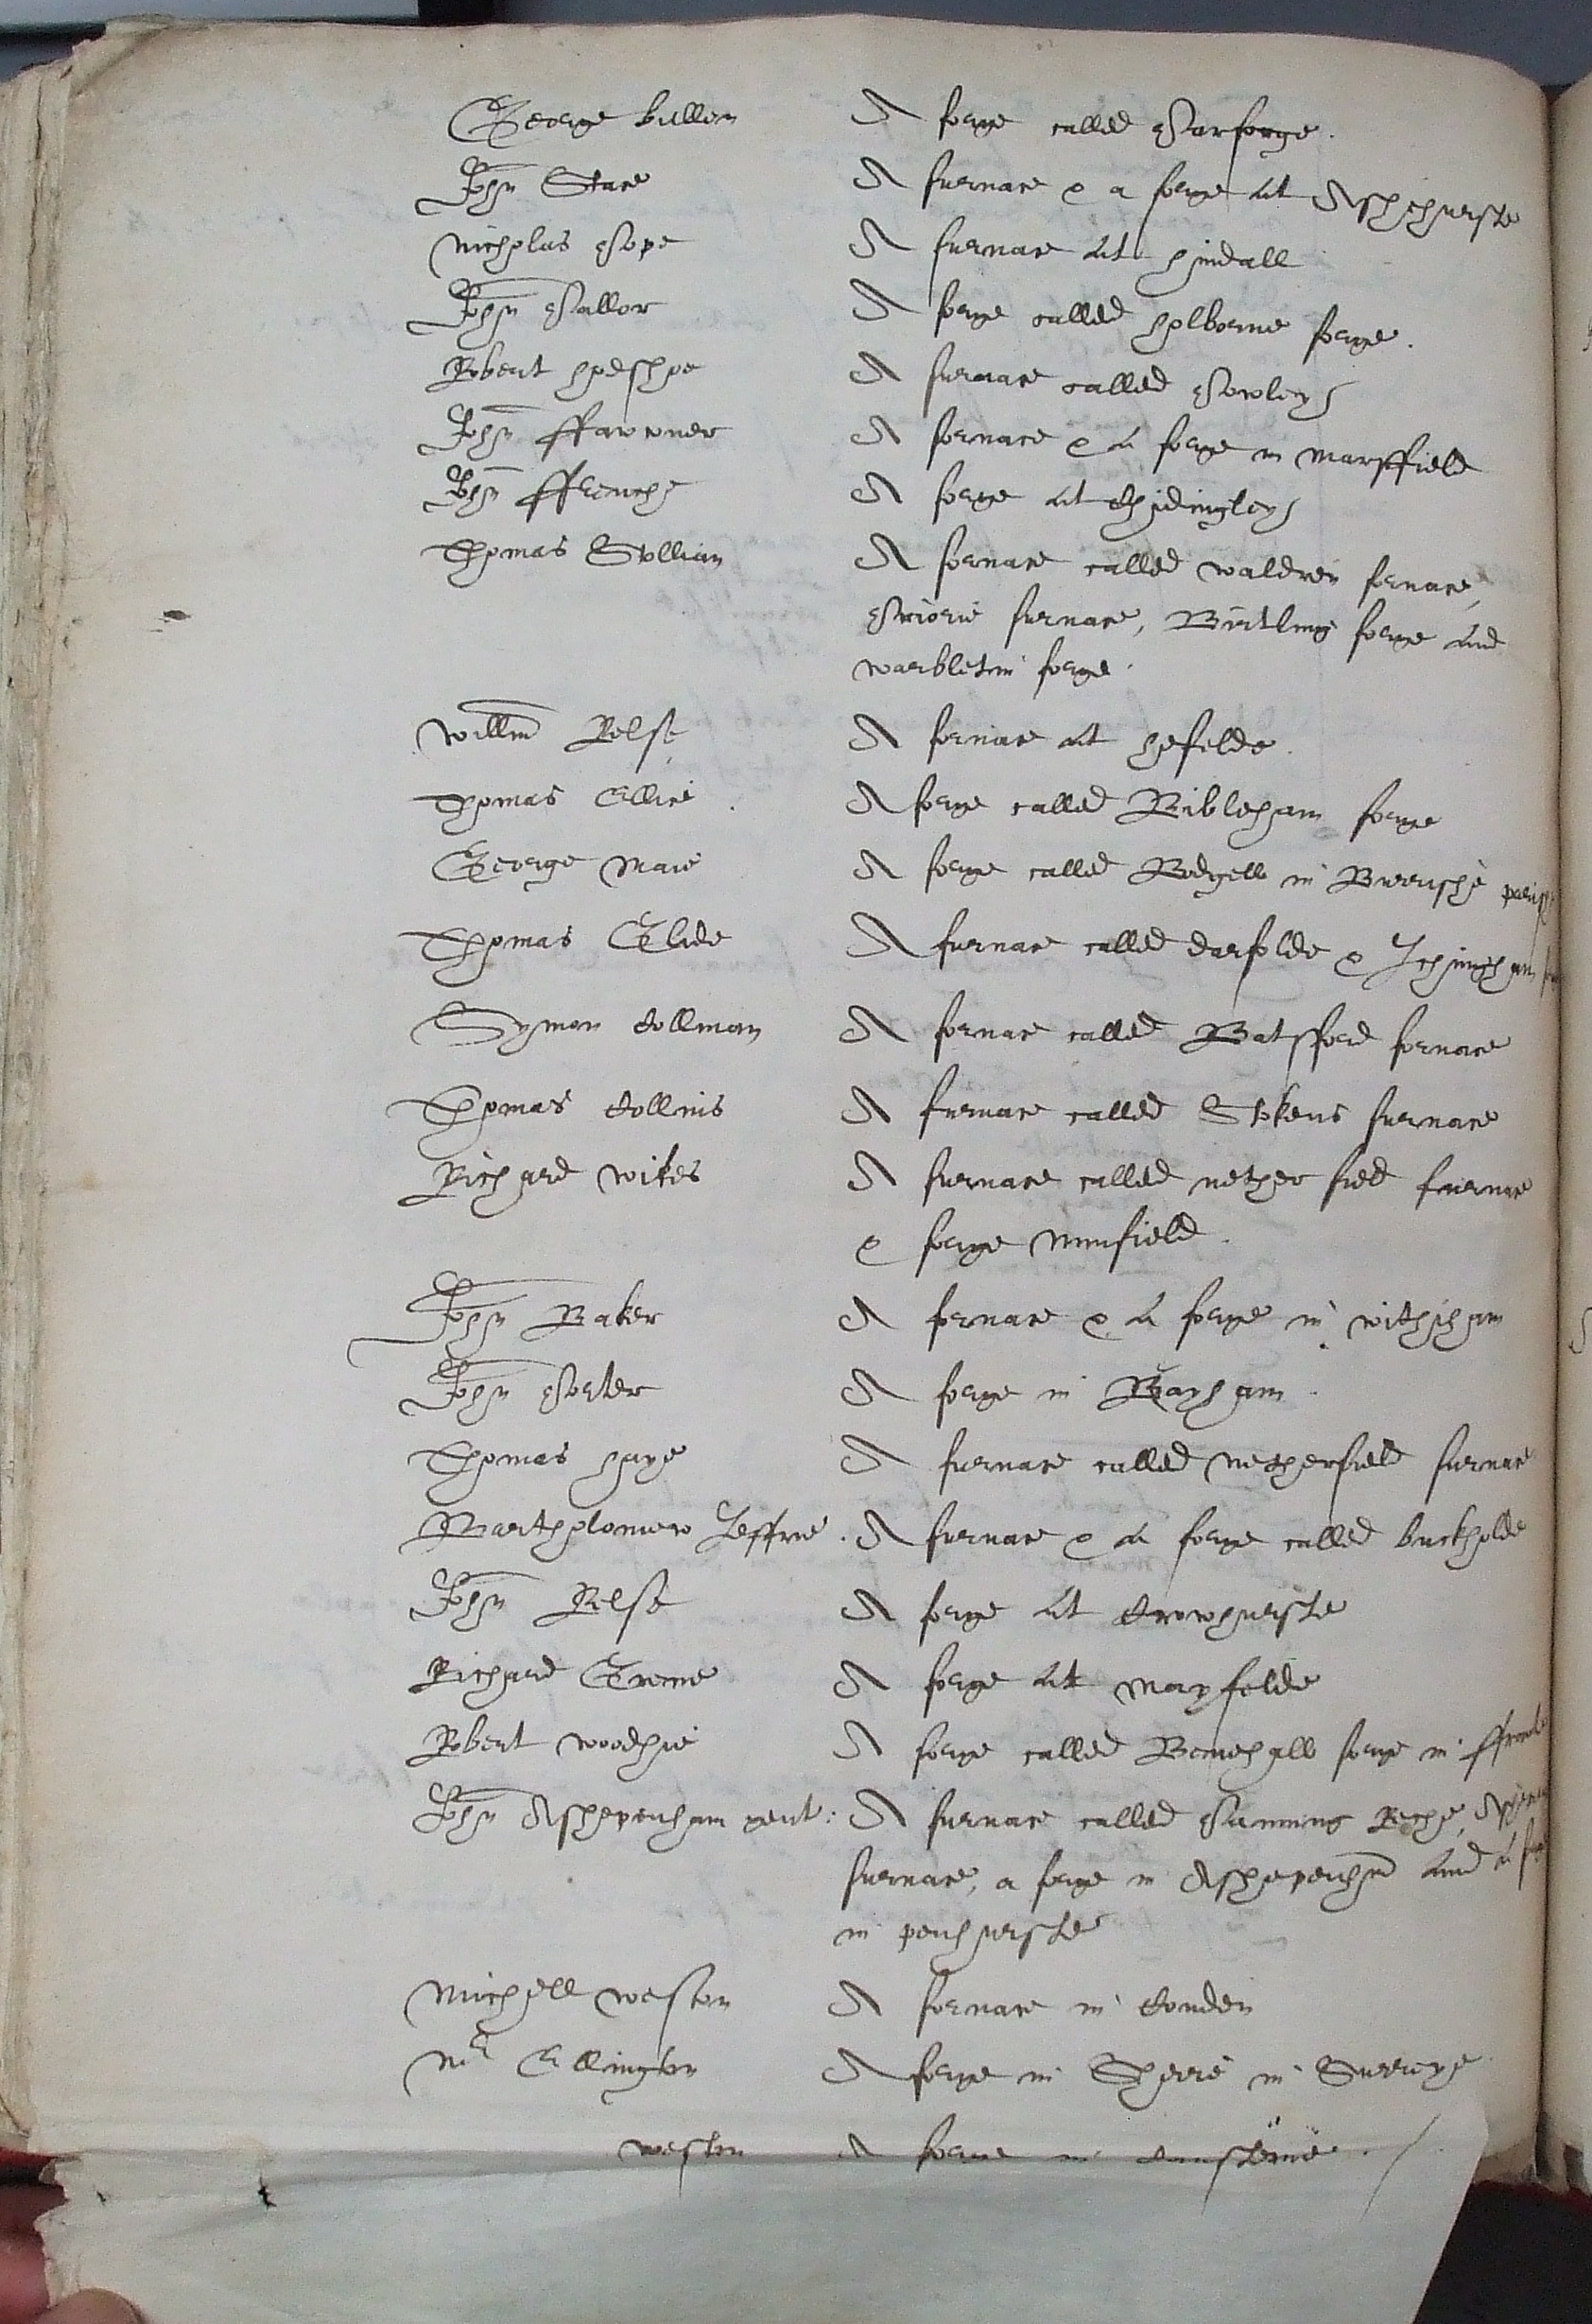 George bullen A forge called Parforge.
John Stace A furnace & a forge at Ashehurste
Nicholas Pope A furnace at hindall
John Pallor A forge called holborne forge.
Robert hodshoe A furnace called Powley
John ffawkner A fornace & a forge in Marsffield
John ffrenche A forge at Chidingley
Thomas Stollian A fornace called waldren fornace,
Priorie furnace, Birtling forge and
warbletin forge.
Willm Relfe A fornace at hefelde.
Thomas Ellice. A forge called Bibleham forge
George Maie A forge called Bodgell in Burrishe parish
Thomas Glide A furnace called darfolde & Ichingham
Symon Collman A fornace called Batsford fornace
Thomas Collins A furnace called Stokens furnace
Richard wikes A furnace called nether fied furnace
& forge Minfield.
John Baker A fornace & a forge in withiham
John Porter A forge in Bayham.
Thomas haye A furnace called Netherfield furnace
Bartholomew Jeffrie. A furnace & a forge called buckholde
John Relfe A forge at Crowhurste
Richard Greene A forge at Mayfelde
Robert woodhie A forge called Benehall forge in
John Ashepenham gent: A furnace called Panning Reche,
furnace, a forge in Ashepenhm and a
in penhurste
Michell weston A fornace in Couden
Mr Ellington A forge in Sheire in Surreye
weston A forge in